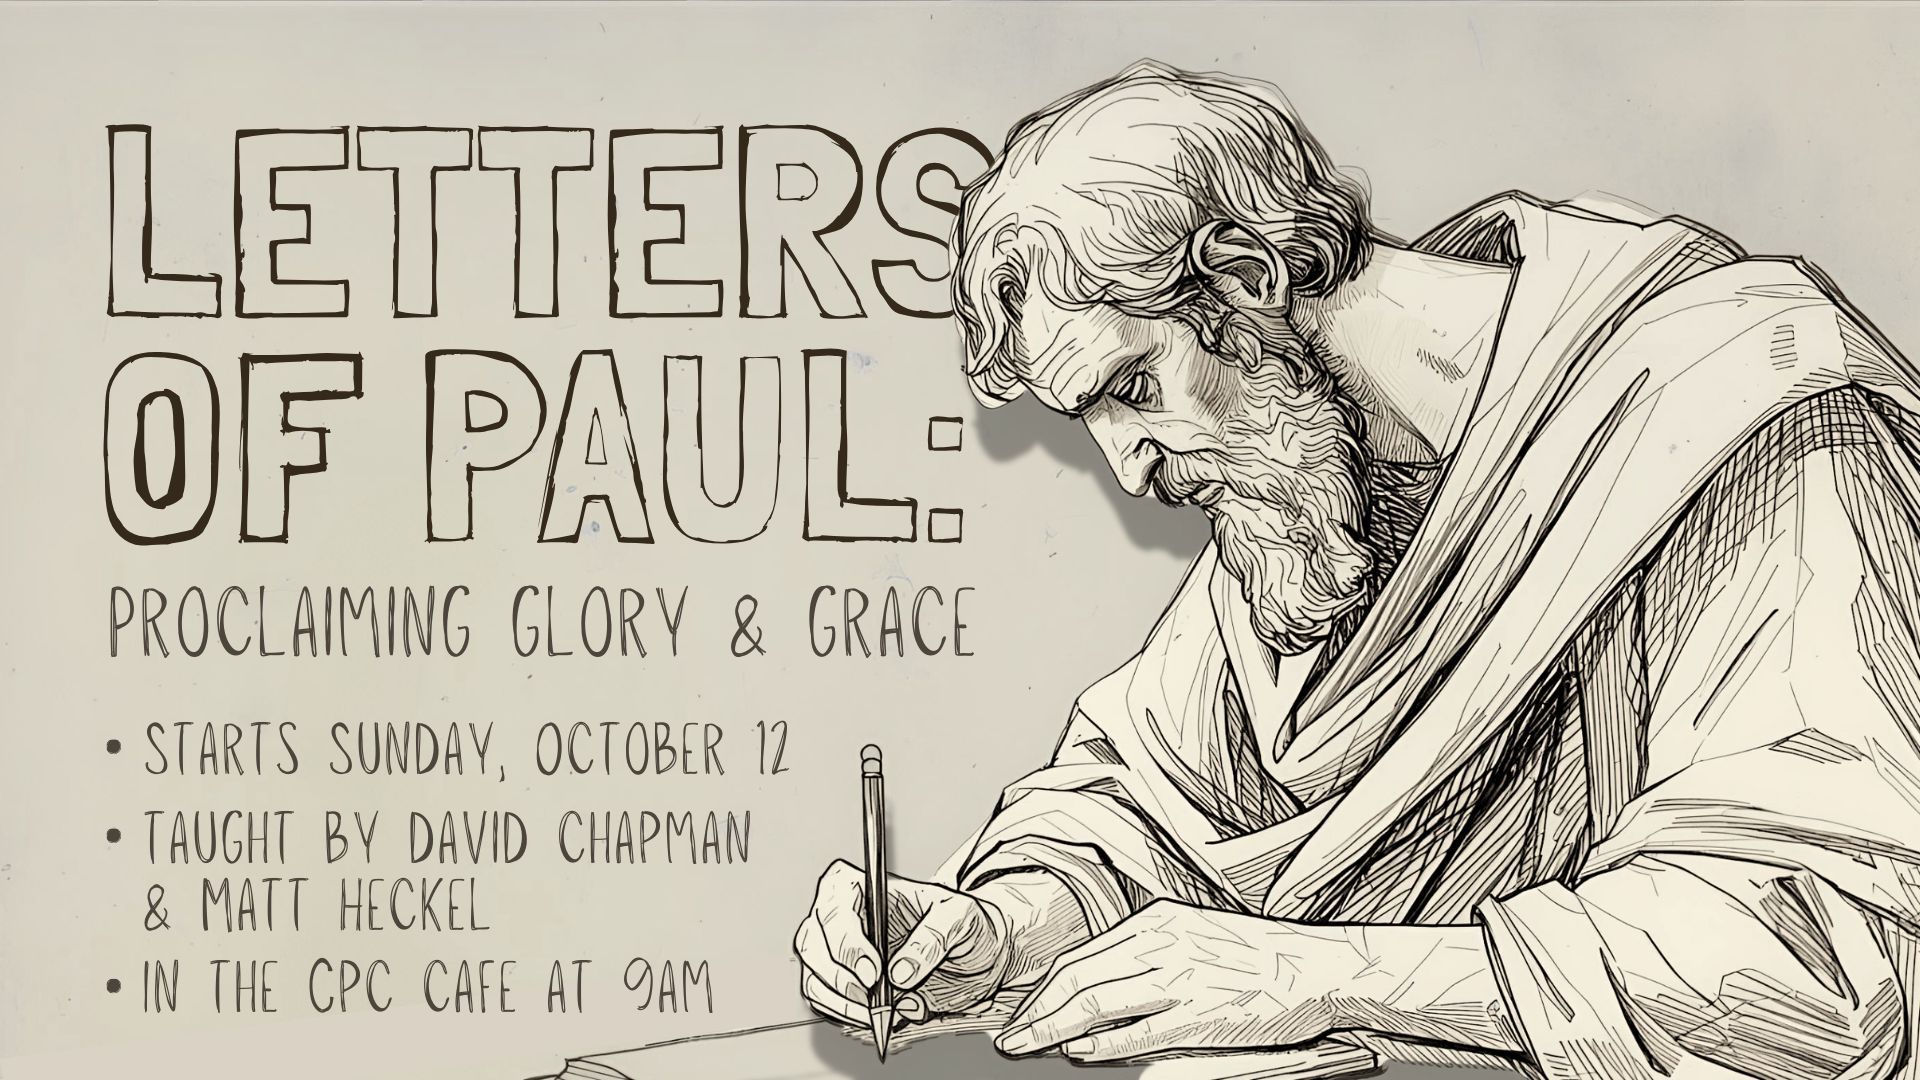 LETTERS
OF PAUL:
PROCLAIMING GLORY & GRACE
• STARTS SUNDAY, OCTOBER 12
• TAUGHT BY DAVID CHAPMAN
& MATT HECKEL
• IN THE CPC CAFE AT 9AM